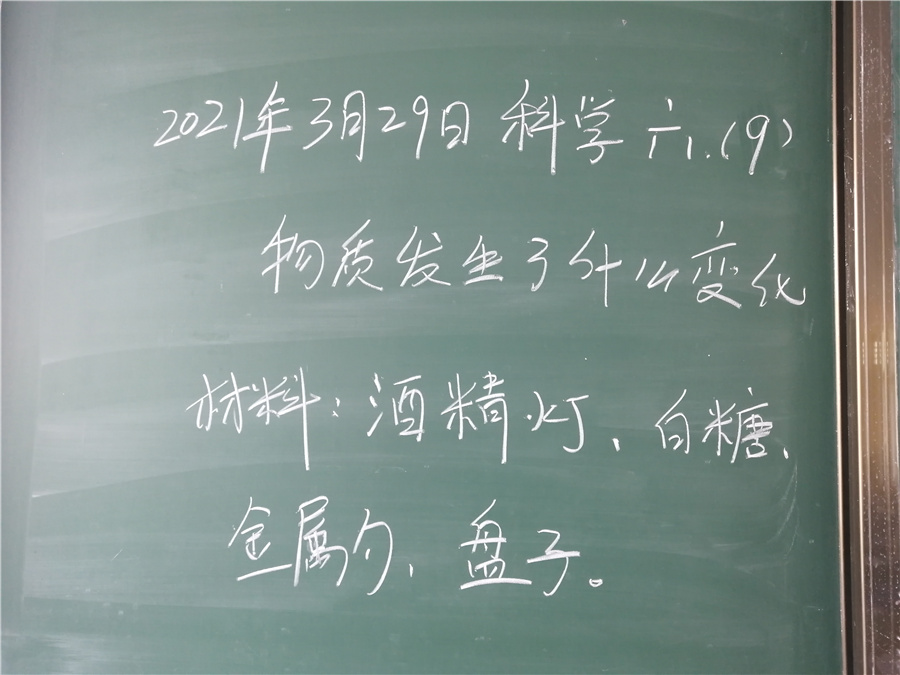 2021年3月29日 科学 六.(9)
物质发生了什么变化
材料:酒精灯、白糖、
金属勺、盘子。